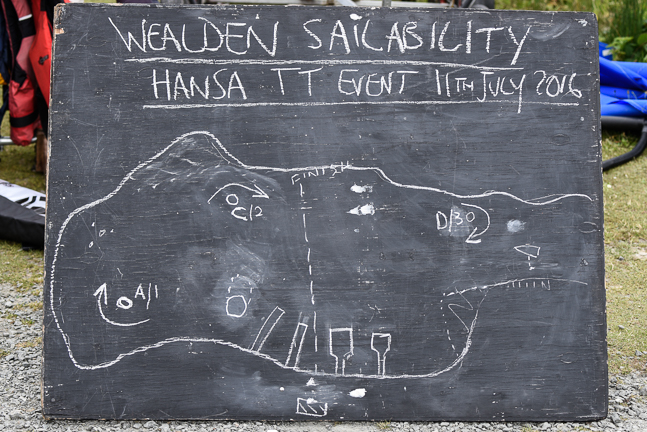 WEALDEN SAILABILITY
HANSA TT EVENT 11TH JULY 2016
FINISH
C/2
D/3
A/1